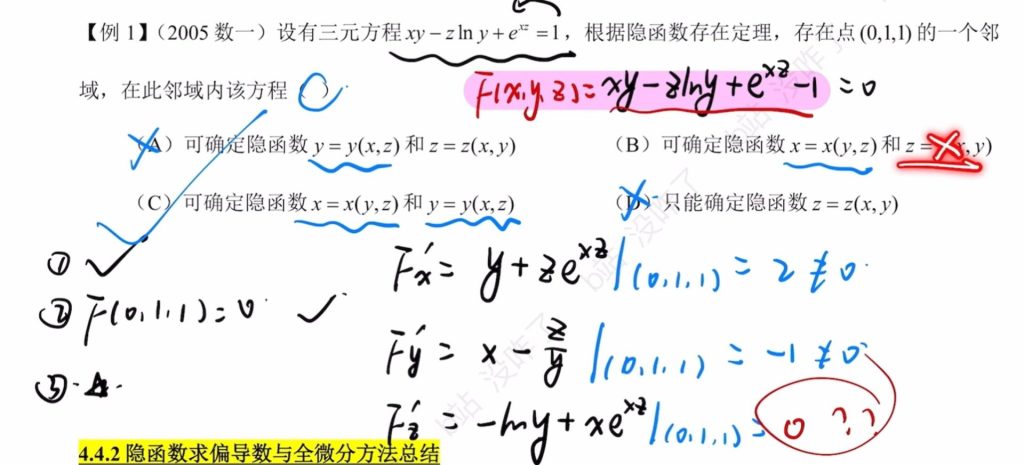 【例 1】（2005 数一）设有三元方程 xy − z ln y + e^{xz} = 1，根据隐函数存在定理，存在点 (0,1,1) 的一个邻
域，在此邻域内该方程（ ）.
F(x,y,z)=xy−zlny+e^{xz}−1=0
（A）可确定隐函数 y = y(x,z) 和 z = z(x,y)
（B）可确定隐函数 x = x(y,z) 和 z = , y)
（C）可确定隐函数 x = x(y,z) 和 y = y(x,z)
（D）只能确定隐函数 z = z(x,y)
① ✓
F'x = y + ze^{xz} |(0,1,1) = 2 ≠ 0.
② F(0,1,1)=0. ✓
F'y = x − z/y |(0,1,1) = −1 ≠ 0.
③.
F'z = −lny + xe^{xz} |(0,1,1) = 0 ??
4.4.2 隐函数求偏导数与全微分方法总结
b站 没咋了